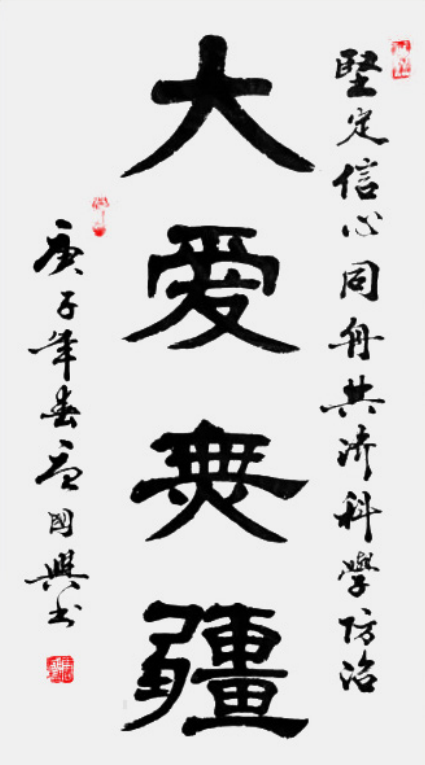 堅定信心同舟共济科學防治
大爱無疆
庚子年春國興书